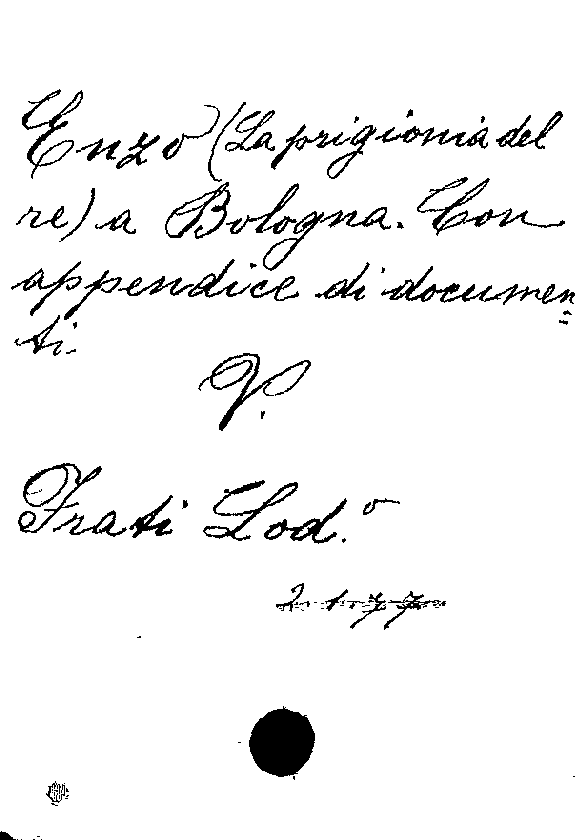 Enzo (La prigionia del
re) a Bologna. Con
appendice di documen=
ti.
V.
Frati Lod.º
2177